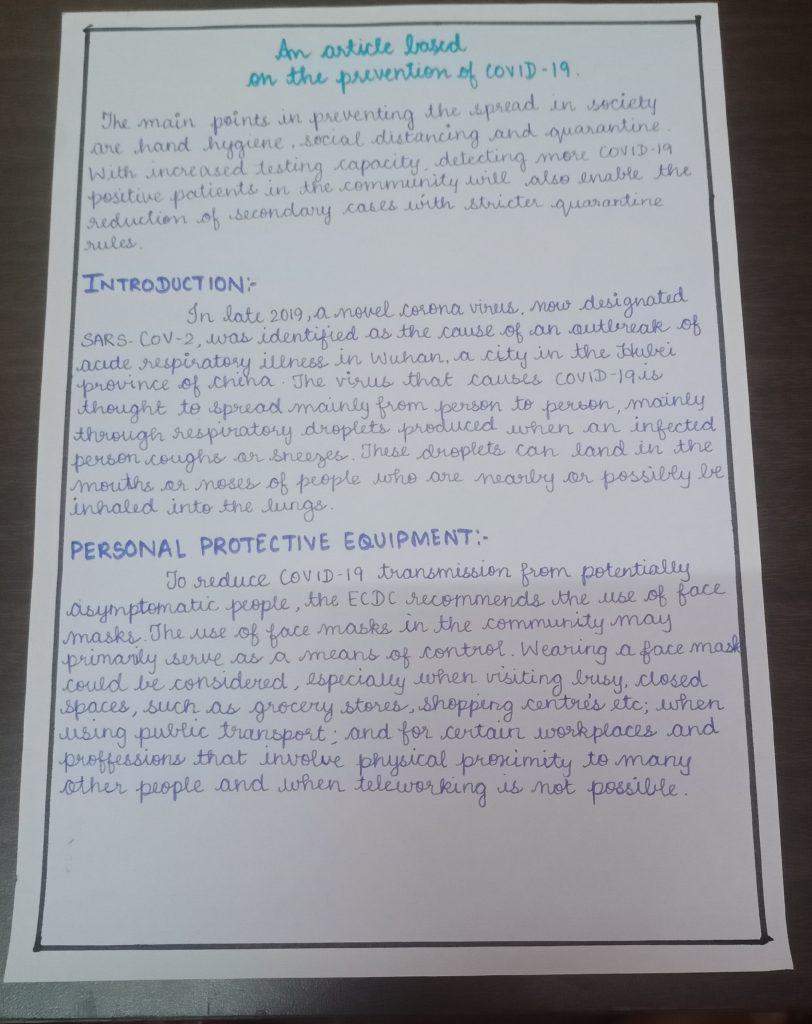 An article based
on the prevention of COVID-19.
The main points in preventing the spread in society
are hand hygiene, social distancing and quarantine.
With increased testing capacity, detecting more COVID-19
positive patients in the community will also enable the
reduction of secondary cases with stricter quarantine
rules.
INTRODUCTION:-
In late 2019, a novel corona virus, now designated
SARS-CoV-2, was identified as the cause of an outbreak of
acute respiratory illness in Wuhan, a city in the Hubei
province of China. The virus that causes COVID-19 is
thought to spread mainly from person to person, mainly
through respiratory droplets produced when an infected
person coughs or sneezes. These droplets can land in the
mouths or noses of people who are nearby or possibly be
inhaled into the lungs.
PERSONAL PROTECTIVE EQUIPMENT:-
To reduce COVID-19 transmission from potentially
asymptomatic people, the ECDC recommends the use of face
masks. The use of face masks in the community may
primarily serve as a means of control. Wearing a face mask
could be considered, especially when visiting busy, closed
spaces, such as grocery stores, shopping centre's etc; when
using public transport; and for certain workplaces and
proffessions that involve physical proximity to many
other people and when teleworking is not possible.